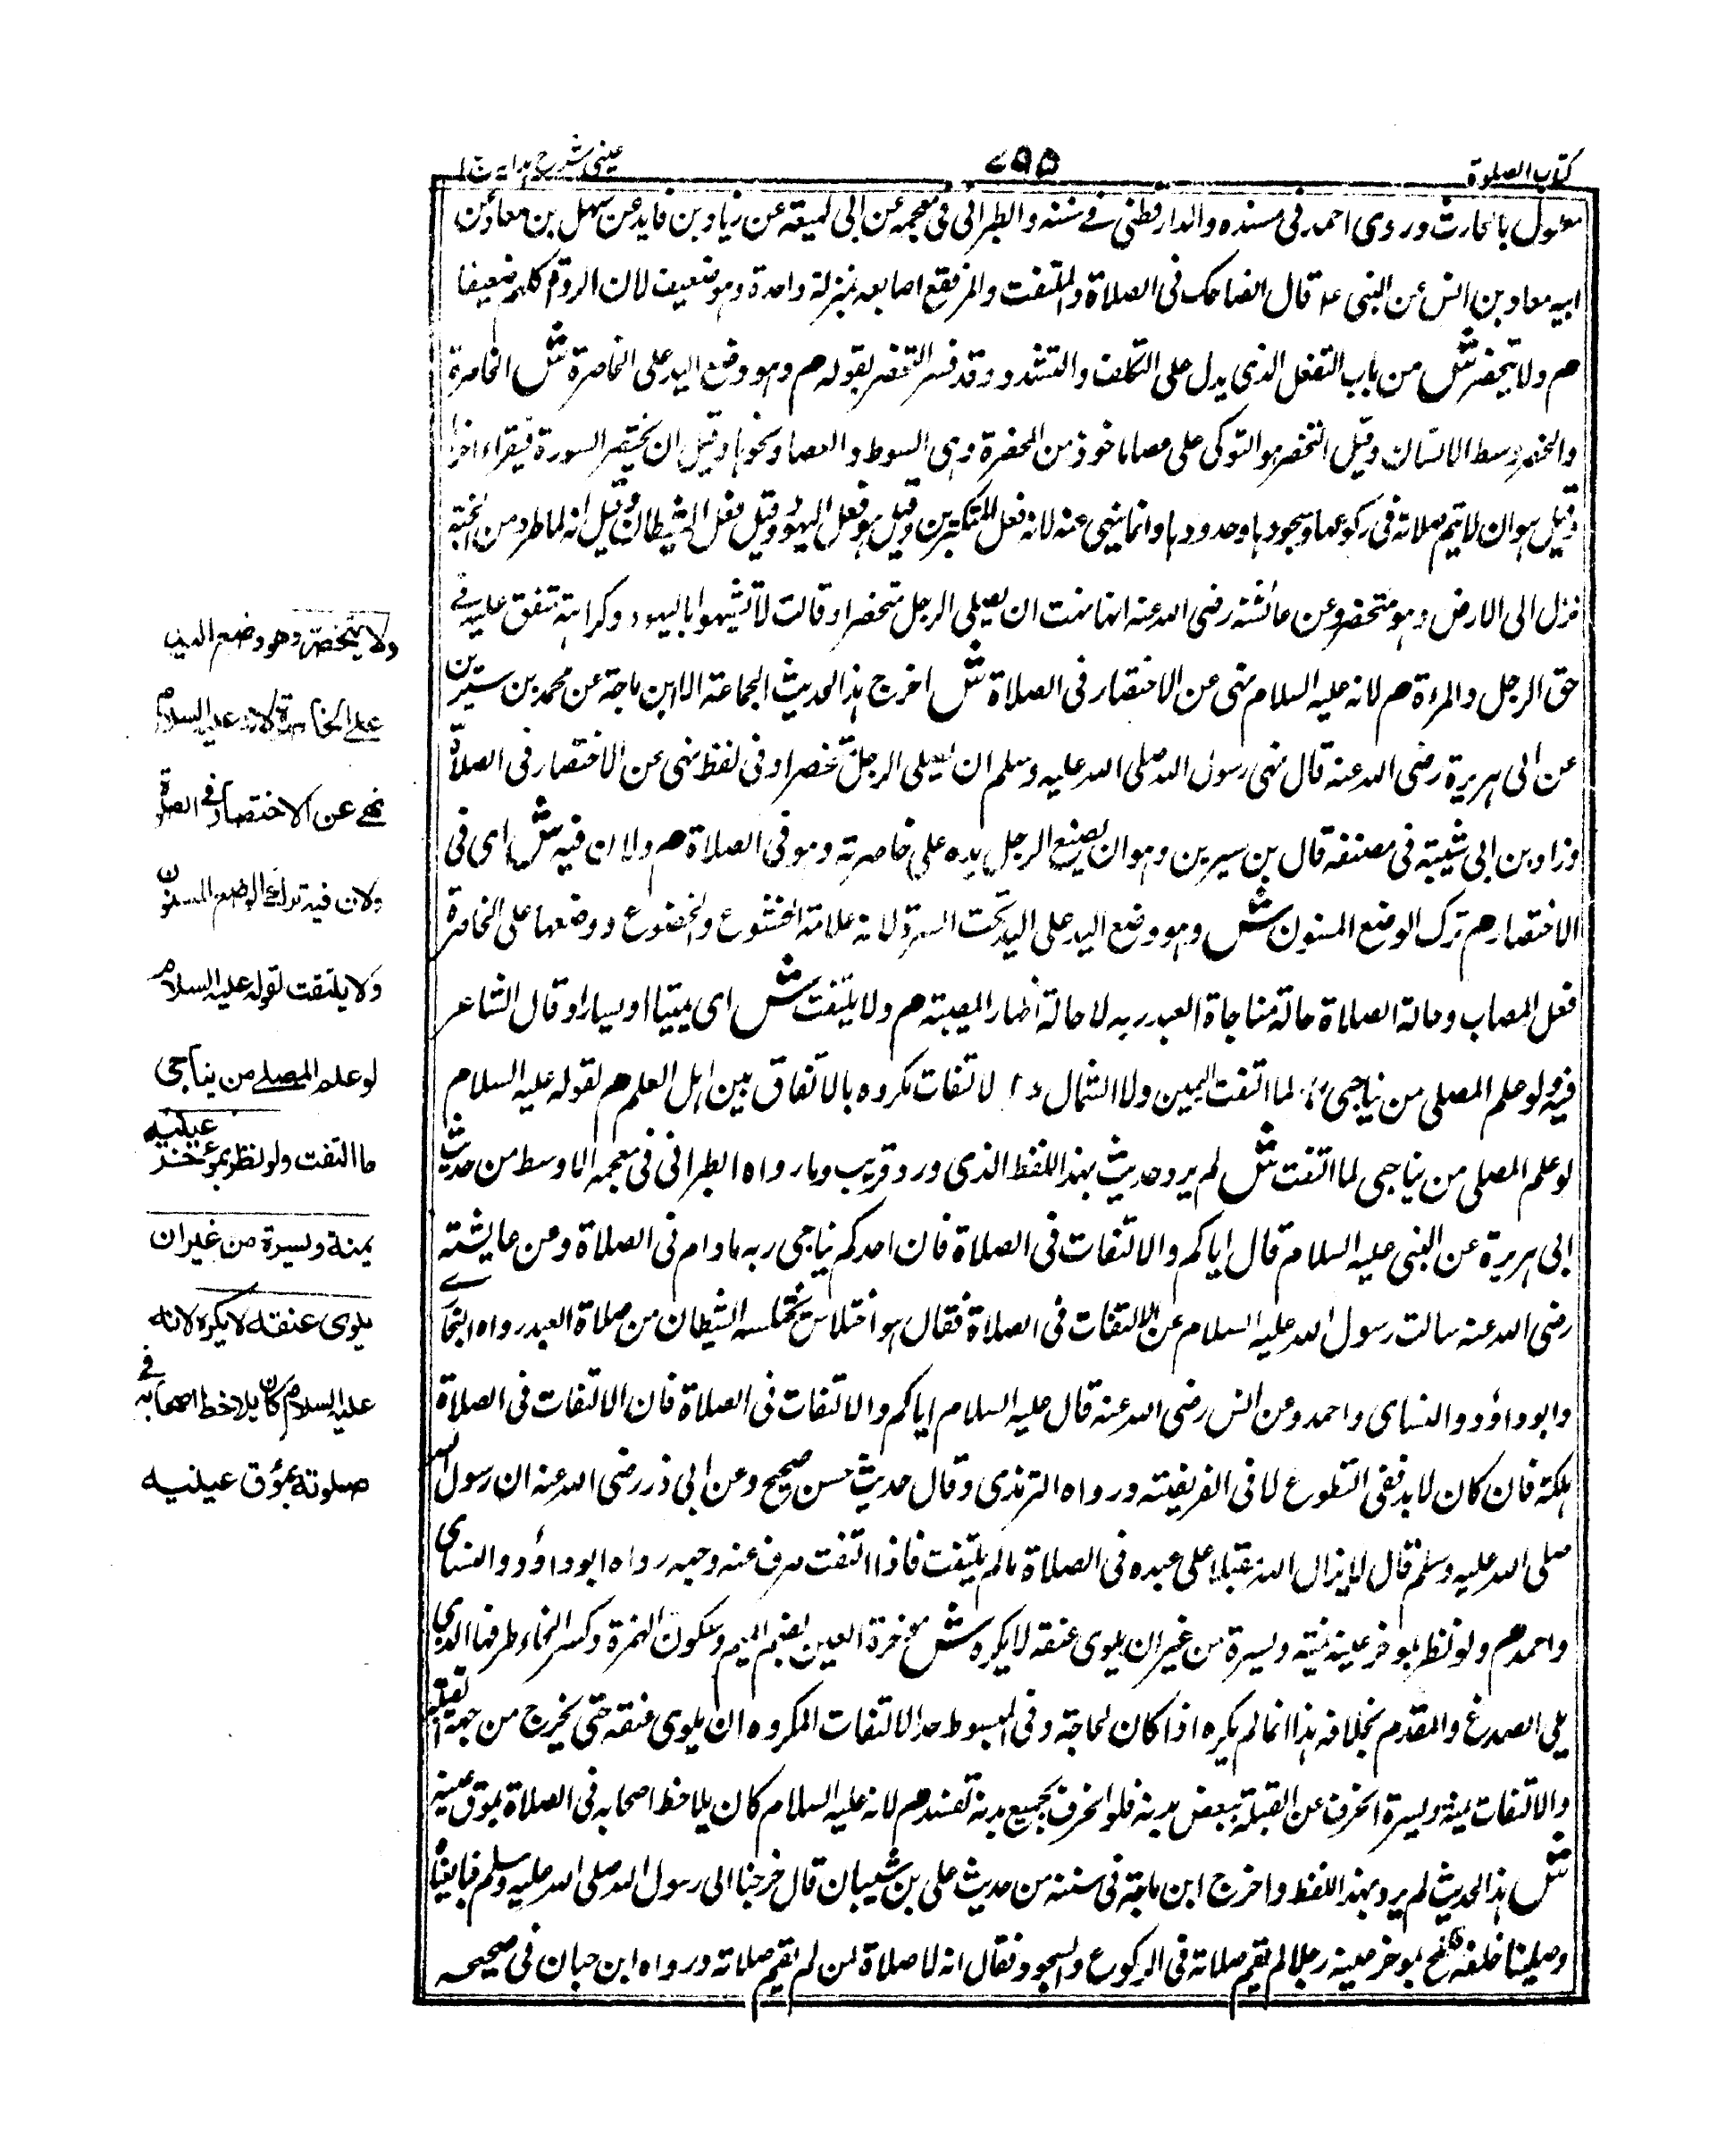 كتاب الصلوة
٧٩٥
عينى شرح هدايه ج ١
معلول بالحارث وروى احمد فى مسنده والدارقطنى فى سننه والطبرانى فى معجمه عن ابى لهيعة عن زياد بن فايد عن سهل بن معاذ عن
ابيه معاذ بن انس عن النبى ع م قال الضاحك فى الصلاة والملتفت والمفرقع اصابعه بمنزلة واحدة وهو ضعيف لان الرواة كلهم ضعيفا
هم ولا يتخصر ش من باب التفعل الذى يدل على التكلف والتشدد وقد فسر التخصر بقوله هم وهو وضع اليد على الخاصرة ش الخاصرة
والخصر وسط الانسان وقيل التخصر هو التوكى على عصا ماخوذ من المخصرة وهى السوط والعصا ونحوها وقيل ان يختصر السورة فيقراء اخرها
وقيل هو ان لا يتم صلاته فى ركوعها وسجودها وحدودها وانما ينهى عنه لانه فعل المتكبرين وقيل هو فعل اليهود وقيل فعل الشيطان وقيل انه لما طرد من الجنة
نزل الى الارض وهو متخصر وعن عائشة رضى الله عنه انها نهت ان يصلى الرجل متخصرا وقالت لا تشبهوا باليهود وكراهته متفق عليه فى
حق الرجل والمراة هم لانه عليه السلام نهى عن الاختصار فى الصلاة ش اخرج هذا الحديث الجماعة الا ابن ماجة عن محمد بن سيرين
عن ابى هريرة رضى الله عنه قال نهى رسول الله صلى الله عليه وسلم ان يصلى الرجل مختصرا وفى لفظ نهى عن الاختصار فى الصلاة
وزاد بن ابى شيبة فى مصنفه قال بن سيرين وهو ان يضع الرجل يده على خاصرته وهو فى الصلاة هم ولان فيه ش اى فى
الاختصار هم ترك الوضع المسنون ش وهو وضع اليد على اليد تحت السرة لانه علامة الخشوع والخضوع ووضعها على الخاصرة
فعل المصاب وحالة الصلاة حالة مناجاة العبد ربه لا حالة اظهار المصيبة هم ولا يلتفت ش اى يمينا او يسارا وقال الشاعر
فيه ولو علم المصلى من يناجى ؛؛ لما التفت اليمين ولا الشمال والالتفات مكروه بالاتفاق بين اهل العلم هم لقوله عليه السلام
لو علم المصلى من يناجى لما التفت ش لم يرد حديث بهذا اللفظ الذى ورد قريب وما رواه الطبرانى فى معجمه الاوسط من حديث
ابى هريرة عن النبى عليه السلام قال اياكم والالتفات فى الصلاة فان احدكم يناجى ربه مادام فى الصلاة وعن عايشته
رضى الله عنه سالت رسول الله عليه السلام عن الالتفات فى الصلاة فقال هو اختلاس يختلسه الشيطان من صلاة العبد رواه البخارى
وابو داؤد والنساى واحمد وعن انس رضى الله عنه قال عليه السلام اياكم والالتفات فى الصلاة فان الالتفات فى الصلاة
هلكة فان كان لابد ففى التطوع لا فى الفريضة ورواه الترمذى وقال حديث حسن صحيح وعن ابى ذر رضى الله عنه ان رسول الله
صلى الله عليه وسلم قال لا يزال الله مقبلا على عبده فى الصلاة مالم يلتفت فاذا التفت صرف عنه وجهه رواه ابو داؤد والنساى
واحمد هم ولو نظر بموخر عينه يمنة ويسرة من غير ان يلوى عنقه لا يكره ش مؤخرة العين بضم الميم وسكون الهمزة وكسر الخاء طرفها الذى
يلى الصدغ والمقدم بخلافه هذا انما لم يكره اذا كان لحاجة وفى المبسوط حد الالتفات المكروه ان يلوى عنقه حتى يخرج من جهة القبلة
والالتفات يمنة ويسرة انحرف عن القبلة ببعض بدنه فلو انحرف بجميع بدنه تفسد هم لانه عليه السلام كان يلاحظ اصحابه فى الصلاة بموق عينه
ش هذا الحديث لم يرد بهذا اللفظ واخرج ابن ماجة فى سننه من حديث على بن شيبان قال خرجنا الى رسول الله صلى الله عليه وسلم فبايعناه
وصلينا خلفه فلمح بموخر عينه رجلا لم يقم صلاته فى الركوع والسجود فقال انه لا صلاة لمن لم يقم صلاته ورواه ابن حبان فى صحيحه
ولا يتخصر وهو وضع اليد
على الخاصرة لانه عليه السلام
نهى عن الاختصار فى الصلوة
ولان فيه ترك الوضع المسنون
ولا يلتفت لقوله عليه السلام
لو علم المصلے من يناجى
ما التفت ولو نظر بمؤخر عينيه
يمنة ويسرة من غير ان
يلوى عنقه لا يكره لانه
عليه السلام كان يلاحظ اصحابه فى
صلوته بمؤق عينيه